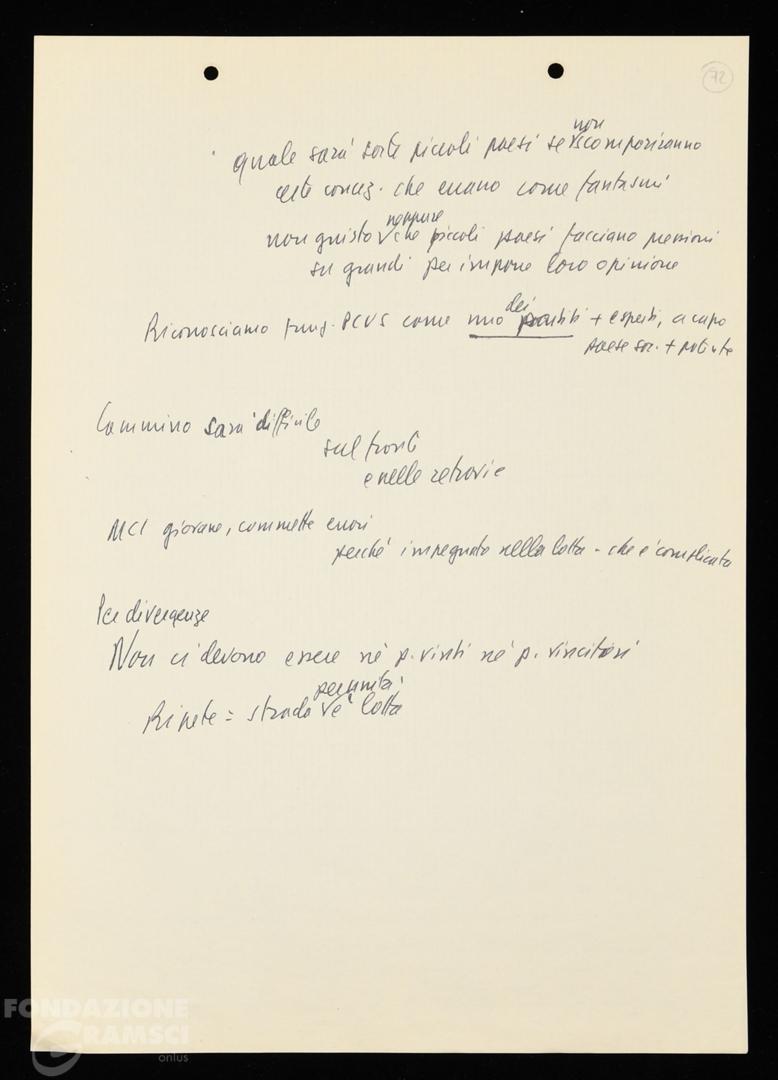 72
quale sarà sorte piccoli paesi se non scompariranno
certe concez. che erano come fantasmi
non giusto neppure che piccoli paesi facciano pressioni
su grandi per imporre loro opinione
Riconosciamo funz. PCUS come uno dei partiti + esperti, a capo
paese soc. + potente
Cammino sarà difficile
sul fronte
e nelle retrovie
MCI giovane, commette errori
perché impegnato nella lotta - che è complicata
Per divergenze
Non ci devono essere né p. vinti né p. vincitori
Ripete = strada per unità è lotta
FONDAZIONE
GRAMSCI
onlus